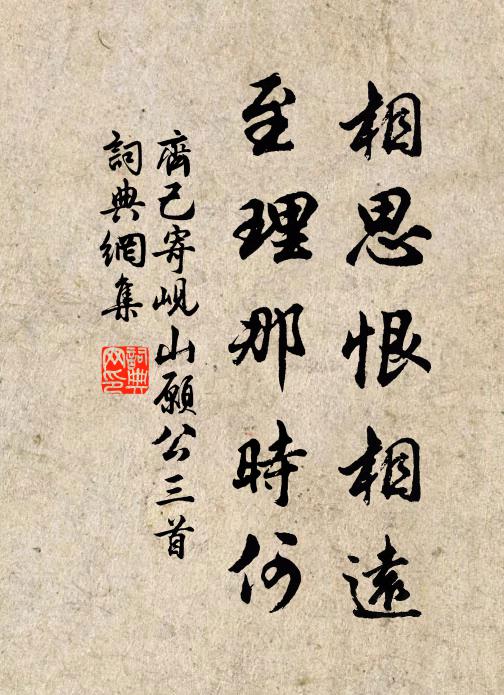 相思恨相遠
至理那時何
齊己寄峴山願公三首
詞典網集
詞典網印